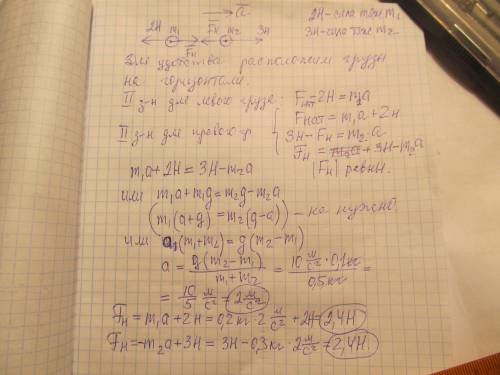 a
2H m₁ Fн m₂ 3H
Fн
2H - сила тяж. m₁
3H - сила тяж m₂
Для удобства расположим грузы
на горизонтали.
II з-н для левого груза: Fнат - 2H = m₁a
Fнат = m₁a + 2H
II з-н для правого гр. 3H - Fн = m₂·a
Fн = 3H - m₂a
|Fн| равны.
m₁a + 2H = 3H - m₂a
или m₁a + m₁g = m₂g - m₂a
(m₁(a+g) = m₂(g-a)) - не нужно.
или a(m₁+m₂) = g(m₂-m₁)
a = g(m₂-m₁) / m₁+m₂ = 10 м/с² · 0,1кг / 0,5кг =
= 10/5 м/с² = 2 м/с²
Fн = m₁a + 2H = 0,2кг · 2 м/с² + 2H = 2,4H
Fн = -m₂a + 3H = 3H - 0,3кг · 2 м/с² = 2,4H